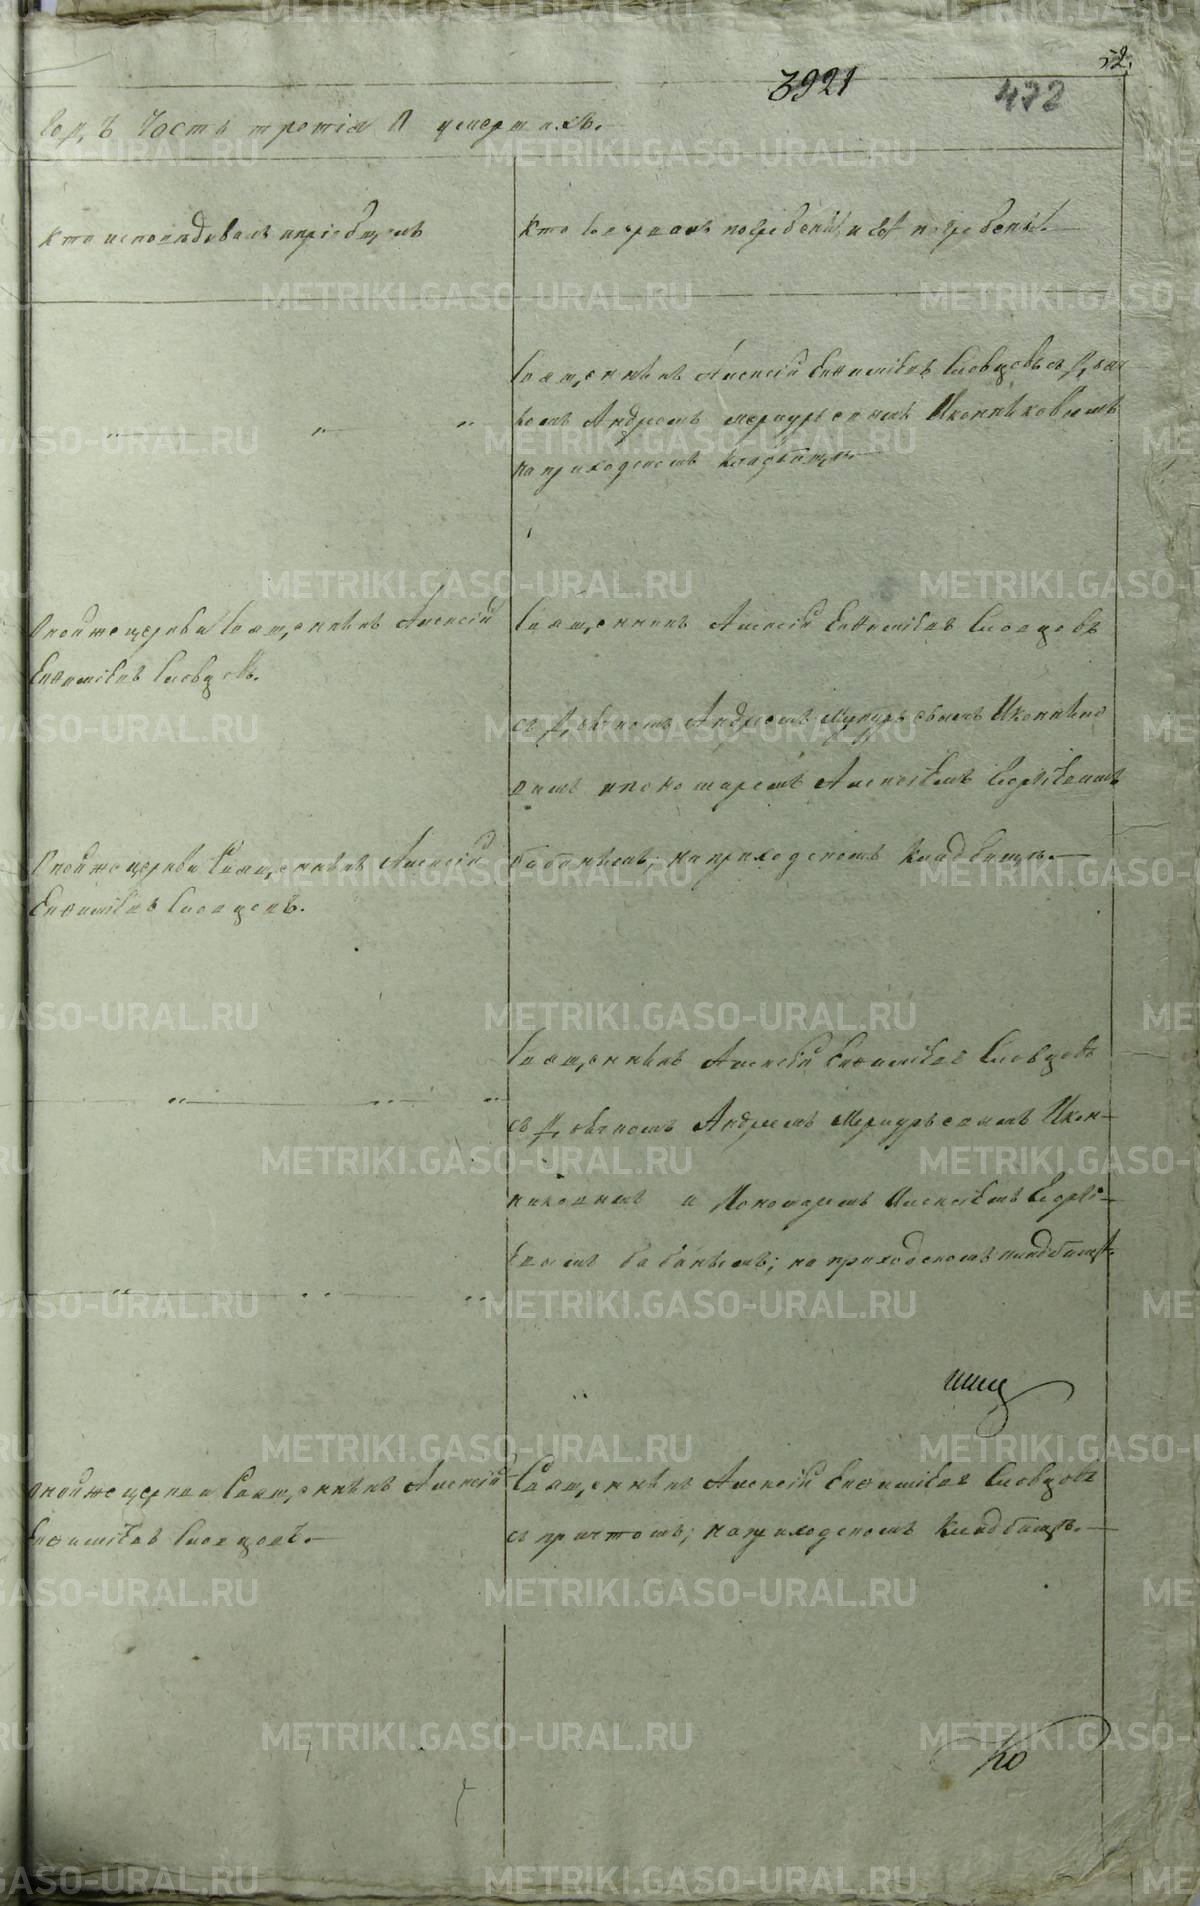 52.
3921
472
годъ Часть третія О умершихъ.
Кто исповѣдывалъ и пріобщалъ
Кто совершалъ погребеніе и гдѣ погребены.
Священникъ Алексій Евѳиміевъ Словцовъ съ Дьяч
комъ Андреемъ Меркурьевымъ Иконниковымъ
на приходскомъ кладбищѣ.
Оной же церкви Священникъ Алексій
Евѳиміевъ Словцовъ.
Священникъ Алексій Евѳиміевъ Словцовъ
съ Дьячкомъ Андреемъ Меркурьевымъ Иконнико
вымъ и пономаремъ Алексіемъ Георгіевымъ
Бабинымъ; на приходскомъ кладбищѣ.
Оной же церкви Священникъ Алексій
Евѳиміевъ Словцовъ.
Священникъ Алексій Евѳиміевъ Словцовъ
съ Дьячкомъ Андреемъ Меркурьевымъ Икон-
никовымъ и Пономаремъ Алексіемъ Георгі-
евымъ Бабинымъ; на приходскомъ кладбищѣ.
Оной же церкви Священникъ Алексій
Евѳиміевъ Словцовъ.
Священникъ Алексій Евѳиміевъ Словцовъ
съ причтомъ; на приходскомъ кладбищѣ.
METRIKI.GASO-URAL.RU